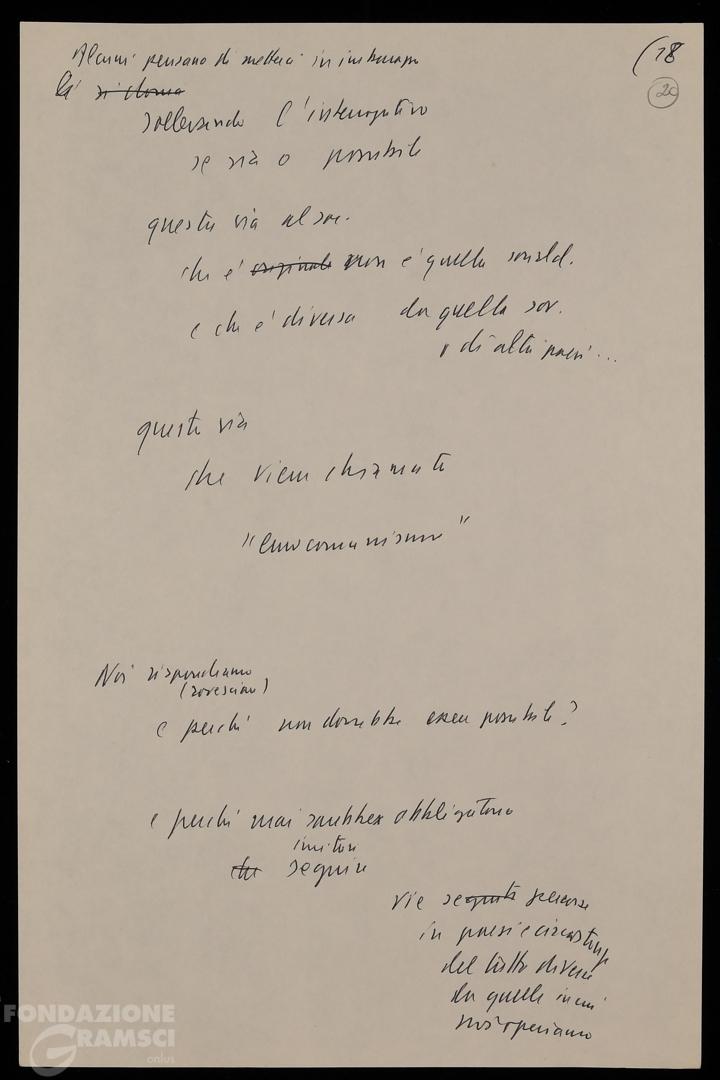 (18
20
Alcuni pensano di metterci in imbarazzo
si doma
sollevando l'interrogativo
se sia o possibile
questa via al soc.
che è originale non è quella sociald.
e che è diversa da quella sov.
o di altri paesi...
questa via
che viene chiamata
"eurocomunismo"
Noi rispondiamo
(rovesciare)
e perché non dovrebbe essere possibile?
e perché mai sarebbe obbligatorio
imitare
che seguire
vie seguite percorse
in paesi e circostanze
del tutto diverse
da quelle in cui
noi operiamo
FONDAZIONE
GRAMSCI
onlus